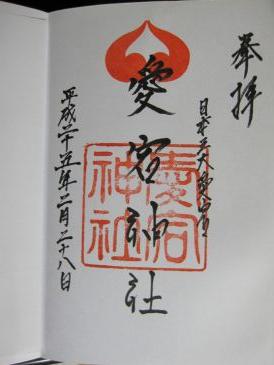 奉拝
日本三大愛宕
愛宕神社
愛宕神社
平成二十五年二月二十八日